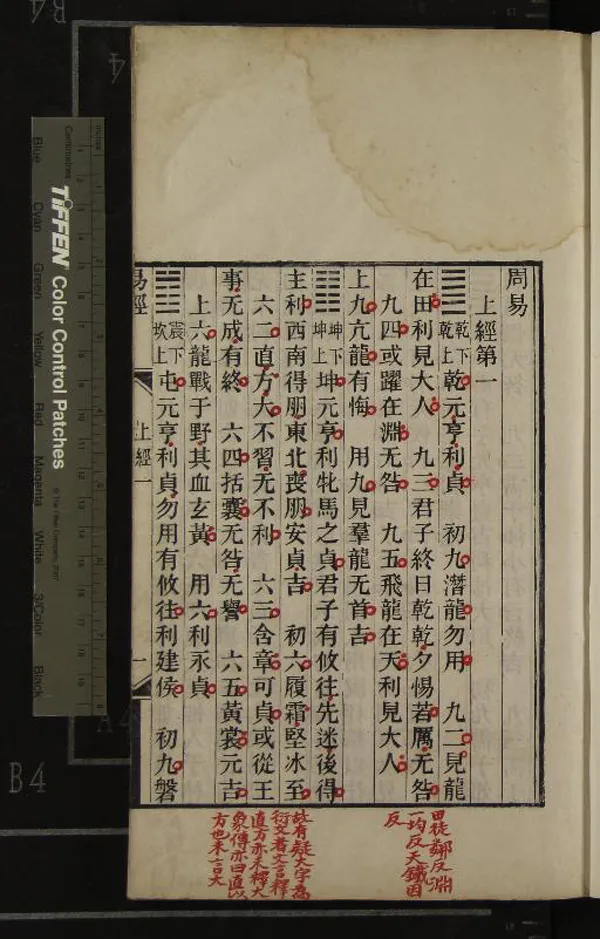 周易
上經第一
䷀乾下乾上乾元亨利貞　初九潛龍勿用　九二見龍
在田利見大人　九三君子終日乾乾夕惕若厲无咎
九四或躍在淵无咎　九五飛龍在天利見大人
上九亢龍有悔　用九見羣龍无首吉
䷁坤下坤上坤元亨利牝馬之貞君子有攸往先迷後得
主利西南得朋東北喪朋安貞吉　初六履霜堅冰至
六二直方大不習无不利　六三含章可貞或從王
事无成有終　六四括囊无咎无譽　六五黃裳元吉
上六龍戰于野其血玄黃　用六利永貞
䷂震下坎上屯元亨利貞勿用有攸往利建侯　初九磐
易經　上經一　一
田徒鄰反淵
一均反天鐵因
反
故有疑大字為
衍文者文言釋
直方亦未釋大
象傳亦曰直以
方也未言大
TIFFEN Color Control Patches
© The Tiffen Company, 2007
Centimetres
Inches
Blue
Cyan
Green
Yellow
Red
Magenta
White
3/Color
Black
B4
A4